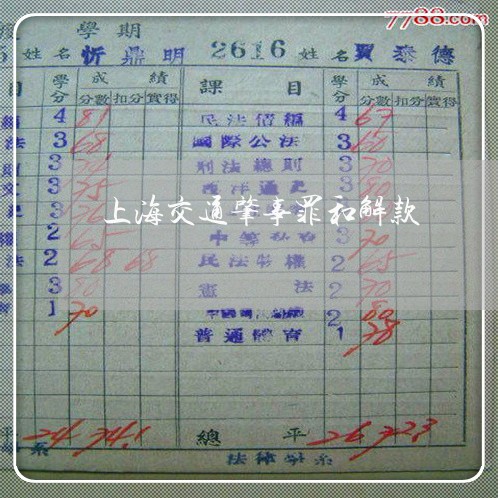 7788.com
學期
姓名 忻鼎明 2616 姓名 賈泰德
目 學分 成績 課目 學分 成績
分數 扣分 實得 分數 扣分 實得
4 81 民法債編 4 67
法 3 68 國際公法 3 60
3 刑法總則 3 70
3 75 西洋通史 3 80
上海交通肇事罪和解款
2 65 3 70
法 2 68 68 民法物權 2 65
3 80 憲法 2 70
1 70 2 80
普通體育 1 78
平 24 74.1 總平 26 72.3
系 法律學系